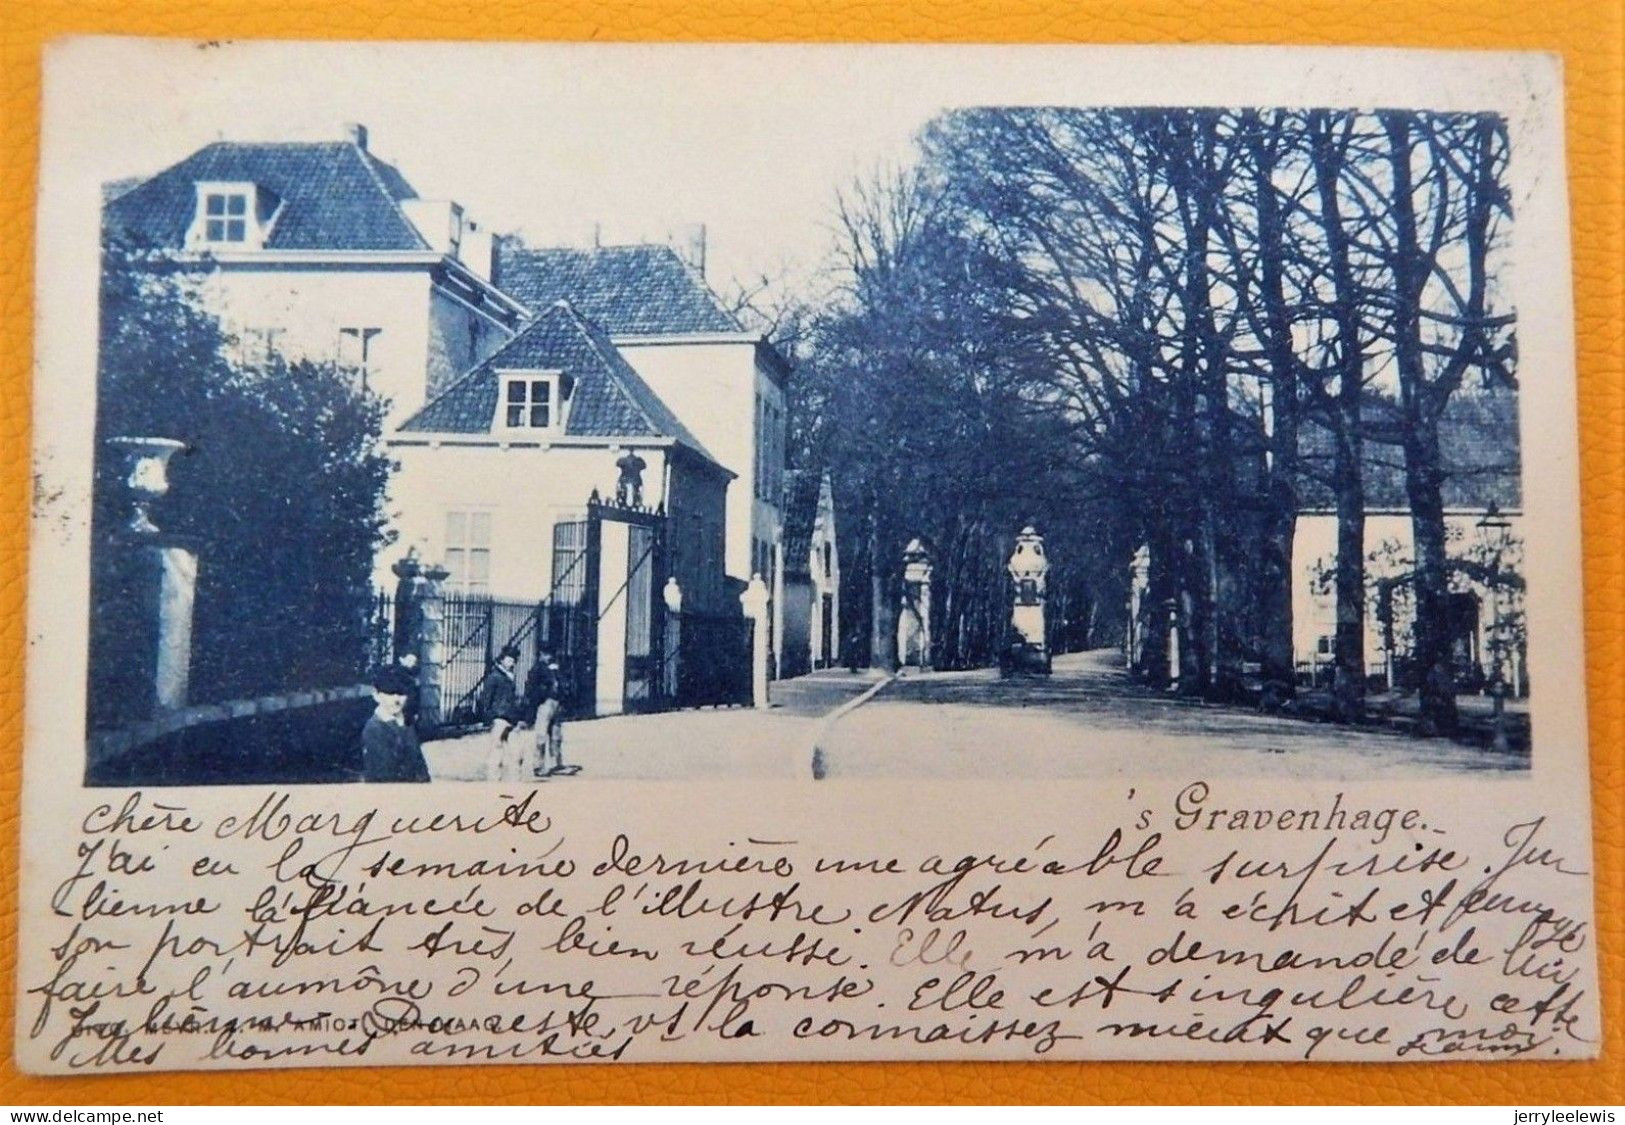 's Gravenhage.
chère Marguerite
J'ai eu la semaine dernière une agréable surprise. Ju
lienne la fiancée de l'illustre Natus, m'a écrit et envoyé
son portrait très bien réussi. Elle m'a demandé de lui
faire l'aumône d'une réponse. Elle est singulière cette
Julienne. Du reste vs la connaissez mieux que moi
Mes bonnes amitiés Jeanne.
AMIOT, DEN HAAG
delcampe.net
jerryleelewis